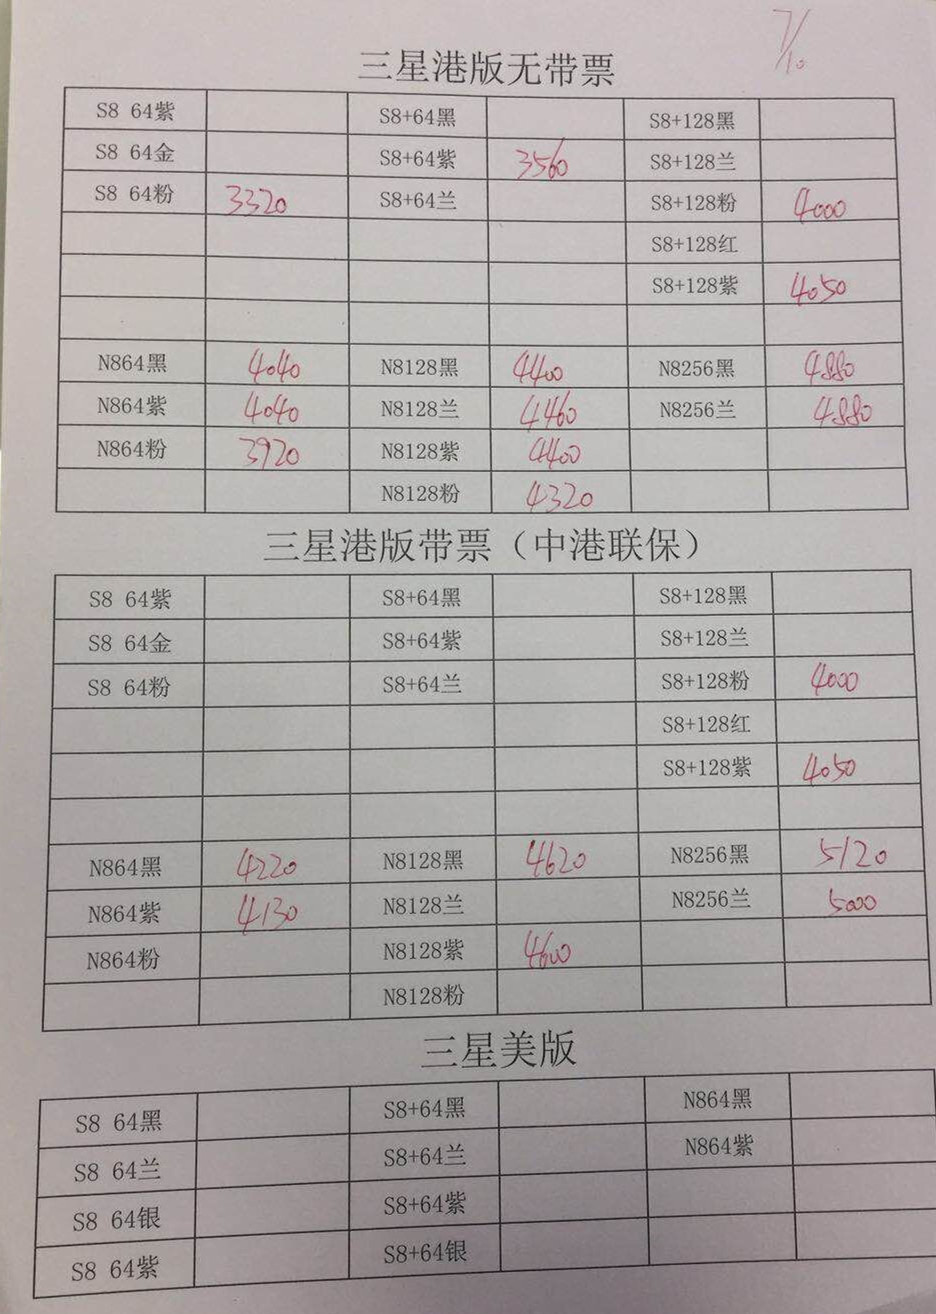 7/10
三星港版无带票
S8 64紫 S8+64黑 S8+128黑
S8 64金 S8+64紫 3560 S8+128兰
S8 64粉 3320 S8+64兰 S8+128粉 4000
S8+128红
S8+128紫 4050
N864黑 4040 N8128黑 4400 N8256黑 4880
N864紫 4040 N8128兰 4460 N8256兰 4880
N864粉 3920 N8128紫 4400
N8128粉 4320
三星港版带票（中港联保）
S8 64紫 S8+64黑 S8+128黑
S8 64金 S8+64紫 S8+128兰
S8 64粉 S8+64兰 S8+128粉 4000
S8+128红
S8+128紫 4050
N864黑 4220 N8128黑 4620 N8256黑 5120
N864紫 4130 N8128兰 N8256兰 5000
N864粉 N8128紫 4600
N8128粉
三星美版
S8 64黑 S8+64黑 N864黑
S8 64兰 S8+64兰 N864紫
S8 64银 S8+64紫
S8 64紫 S8+64银